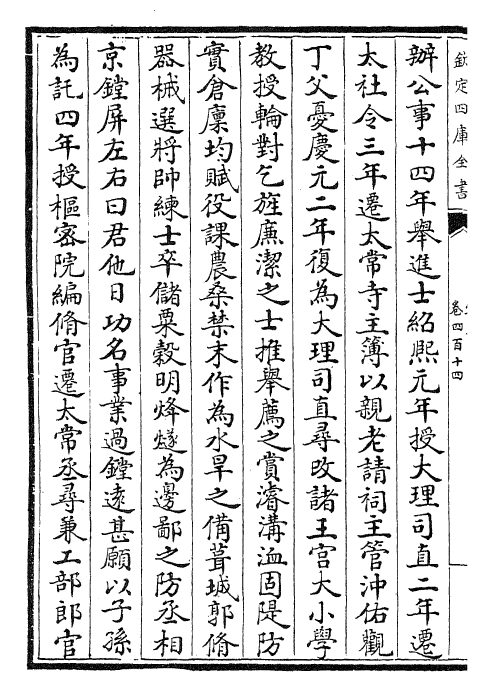 欽定四庫全書
卷四百十四
辦公事十四年舉進士紹熙元年授大理司直二年遷
太社令三年遷太常寺主簿以親老請祠主管沖佑觀
丁父憂慶元二年復為大理司直尋改諸王宫大小學
教授輪對乞旌廉潔之士推舉薦之賞濬溝洫固隄防
實倉廩均賦役課農桑禁末作為水旱之備葺城郭脩
器械選將帥練士卒儲粟榖明烽燧為邊鄙之防丞相
京鏜屏左右曰君他日功名事業過鏜逺甚願以子孫
為託四年授樞宻院編脩官遷太常丞尋兼工部郎官